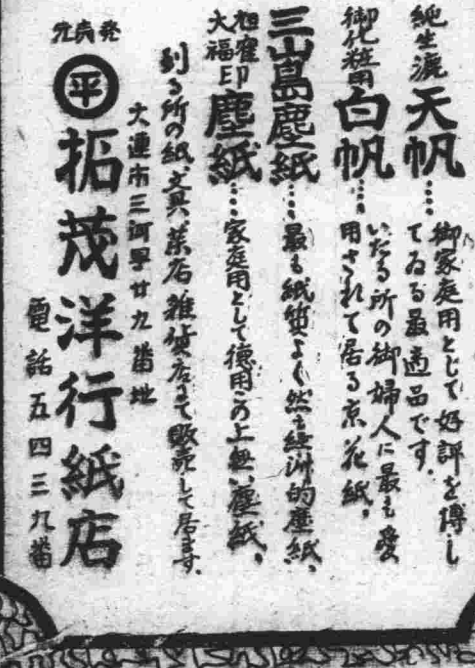 純生漉 天帆……御家庭用として好評を博し
てゐる最適品です.
御化粧用 白帆……いたる所の御婦人に最も愛
用されて居る京花紙,
三山島塵紙……最も紙質よく然も経済的塵紙,
大福印 塵紙……家庭用として徳用この上無い塵紙,
到る所の紙、文具、薬店雑貨店にて販売して居ます.
大連市三河町廿九番地
発売元
㊥ 拓茂洋行紙店
電話五四三九番